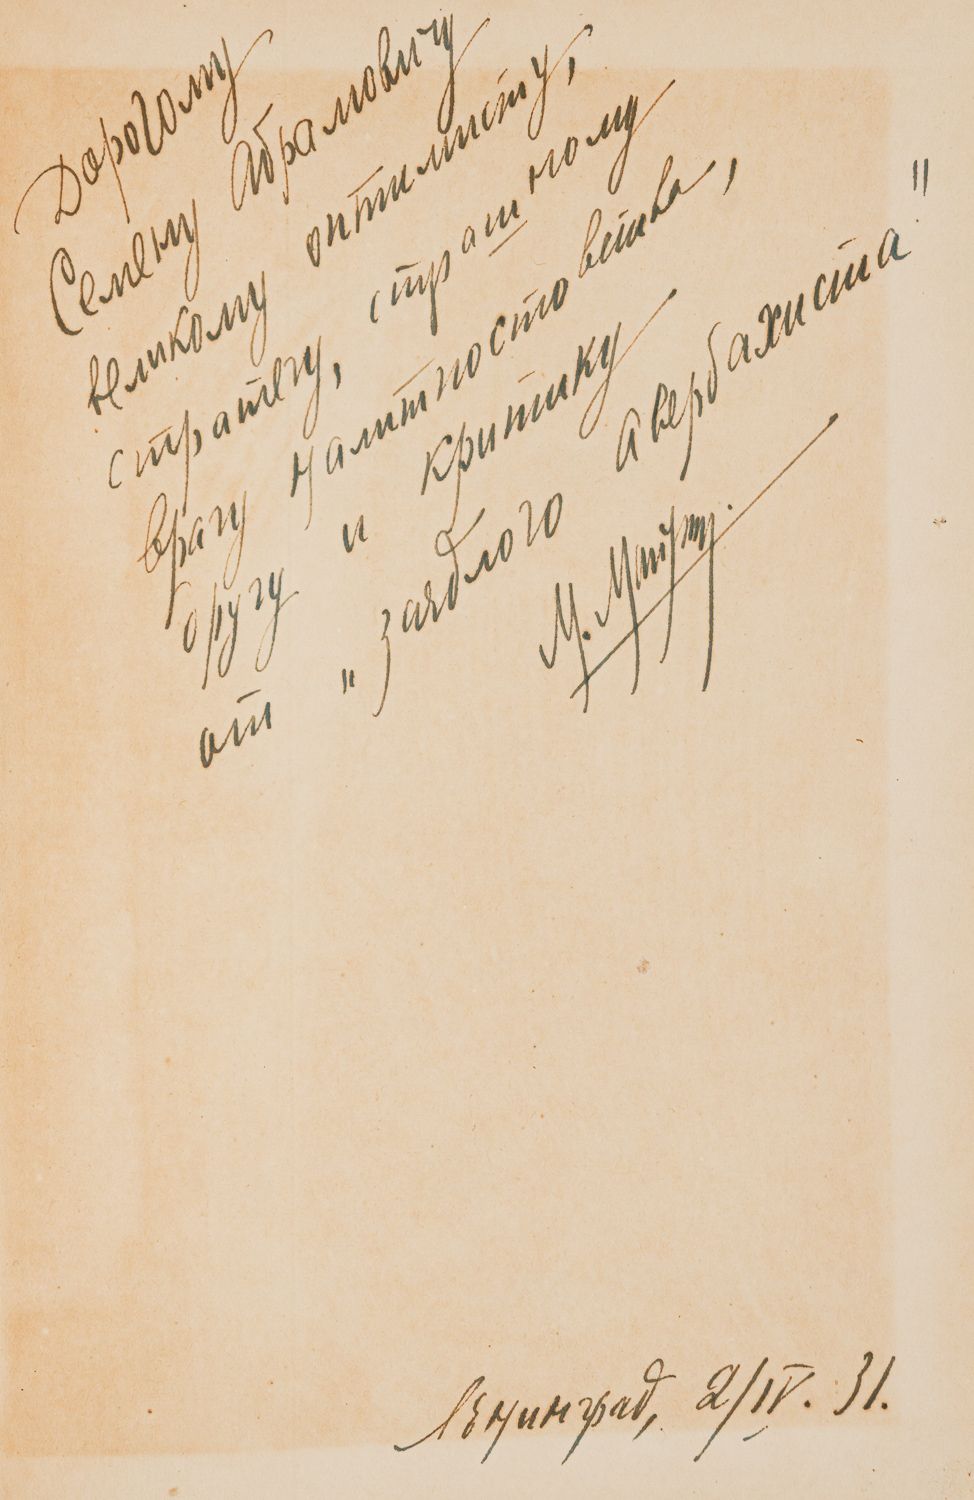 Дорогому
Семену Абрамовичу
великому оптимисту,
стратегу, страшному
врагу налитпостовства,
другу и критику
от "заядлого авербахиста"
М.
Ленинград, 2/IV. 31.